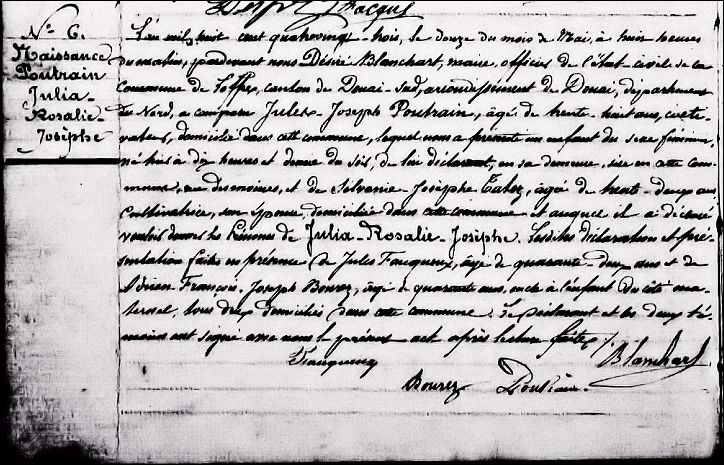 Nº 6.
Naissance
Poutrain
Julia-
Rosalie-
Josèphe
L'an mil huit cent quatrevingt trois, le douze du mois de Mai, à huit heures
du matin, pardevant nous Désiré Blanchart, maire, officier de l'état civil de la
Commune de Loffre, canton de Douai-Sud, arrondissement de Douai, département
du Nord, a comparu Jules-Joseph Poutrain, âgé de trente-huit ans, culti-
vateur, domicilié dans cette commune, lequel nous a présenté un enfant du sexe féminin,
né hier à dix heures et demie du soir, de lui déclarant, en sa demeure, sise en cette com-
mune, rue des moines, et de Silvanie-Josèphe, âgée de trente-deux ans
Cultivatrice, son épouse, domiciliée dans cette commune et auquel il a déclaré
vouloir donner les prénoms de Julia-Rosalie-Josèphe. Lesdites déclaration et pré-
sentation faites en présence de Jules Fauqueux, âgé de quarante-deux ans et de
Adrien-François-Joseph Bourez, âgé de quarante ans, oncle à l'enfant du côté ma-
ternel, tous deux domiciliés dans cette commune. Le déclarant et les deux té-
moins ont signé avec nous le présent acte après lecture faite.
Fauqueux
Blanchart
Bourez Poutrain